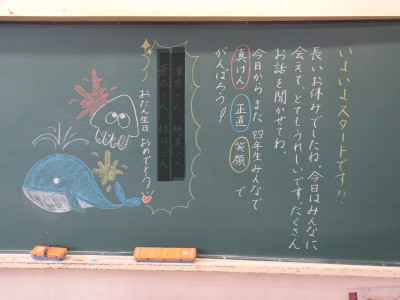 いよいよスタートです!!
長いお休みでしたね。今日はみんなに
会えて、とてもうれしいです。たくさん
お話を聞かせてね。
今日からまた、四年生みんなで
真けん 正直 笑顔 で
がんばろう!
おたん生日 おめでとう!!